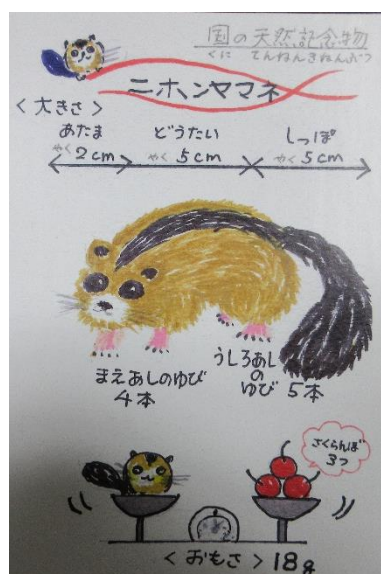 国の天然記念物
くに てんねんきねんぶつ
ニホンヤマネ
<大きさ>
あたま どうたい しっぽ
やく2cm やく5cm やく5cm
まえあしのゆび
4本
うしろあし
の
ゆび 5本
さくらんぼ
3つ
<おもさ> 18g